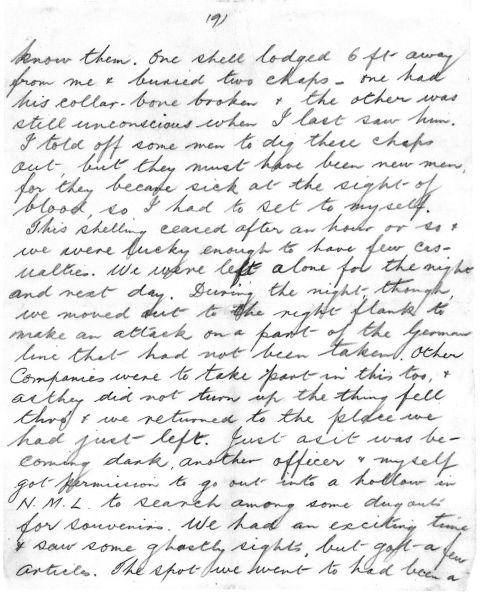 (9)
know them. One shell lodged 6 ft away
from me & buried two chaps - one had
his collar-bone broken & the other was
still unconscious when I last saw him.
I told off some men to dig these chaps
out, but they must have been new men,
for they became sick at the sight of
blood, so I had to set to myself.
This shelling ceased after an hour or so &
we were lucky enough to have few cas-
ualties. We were left alone for the night
and next day. During the night, though,
we moved out to the right flank to
make an attack on a part of the German
line that had not been taken. Other
Companies were to take part in this too, &
as they did not turn up the thing fell
thro' & we returned to the place we
had just left. Just as it was be-
coming dark, another officer & myself
got permission to go out into a hollow in
N.M.L. to search among some dugouts
for souvenirs. We had an exciting time
& saw some ghastly sights, but got a few
articles. The spot we went to had been a